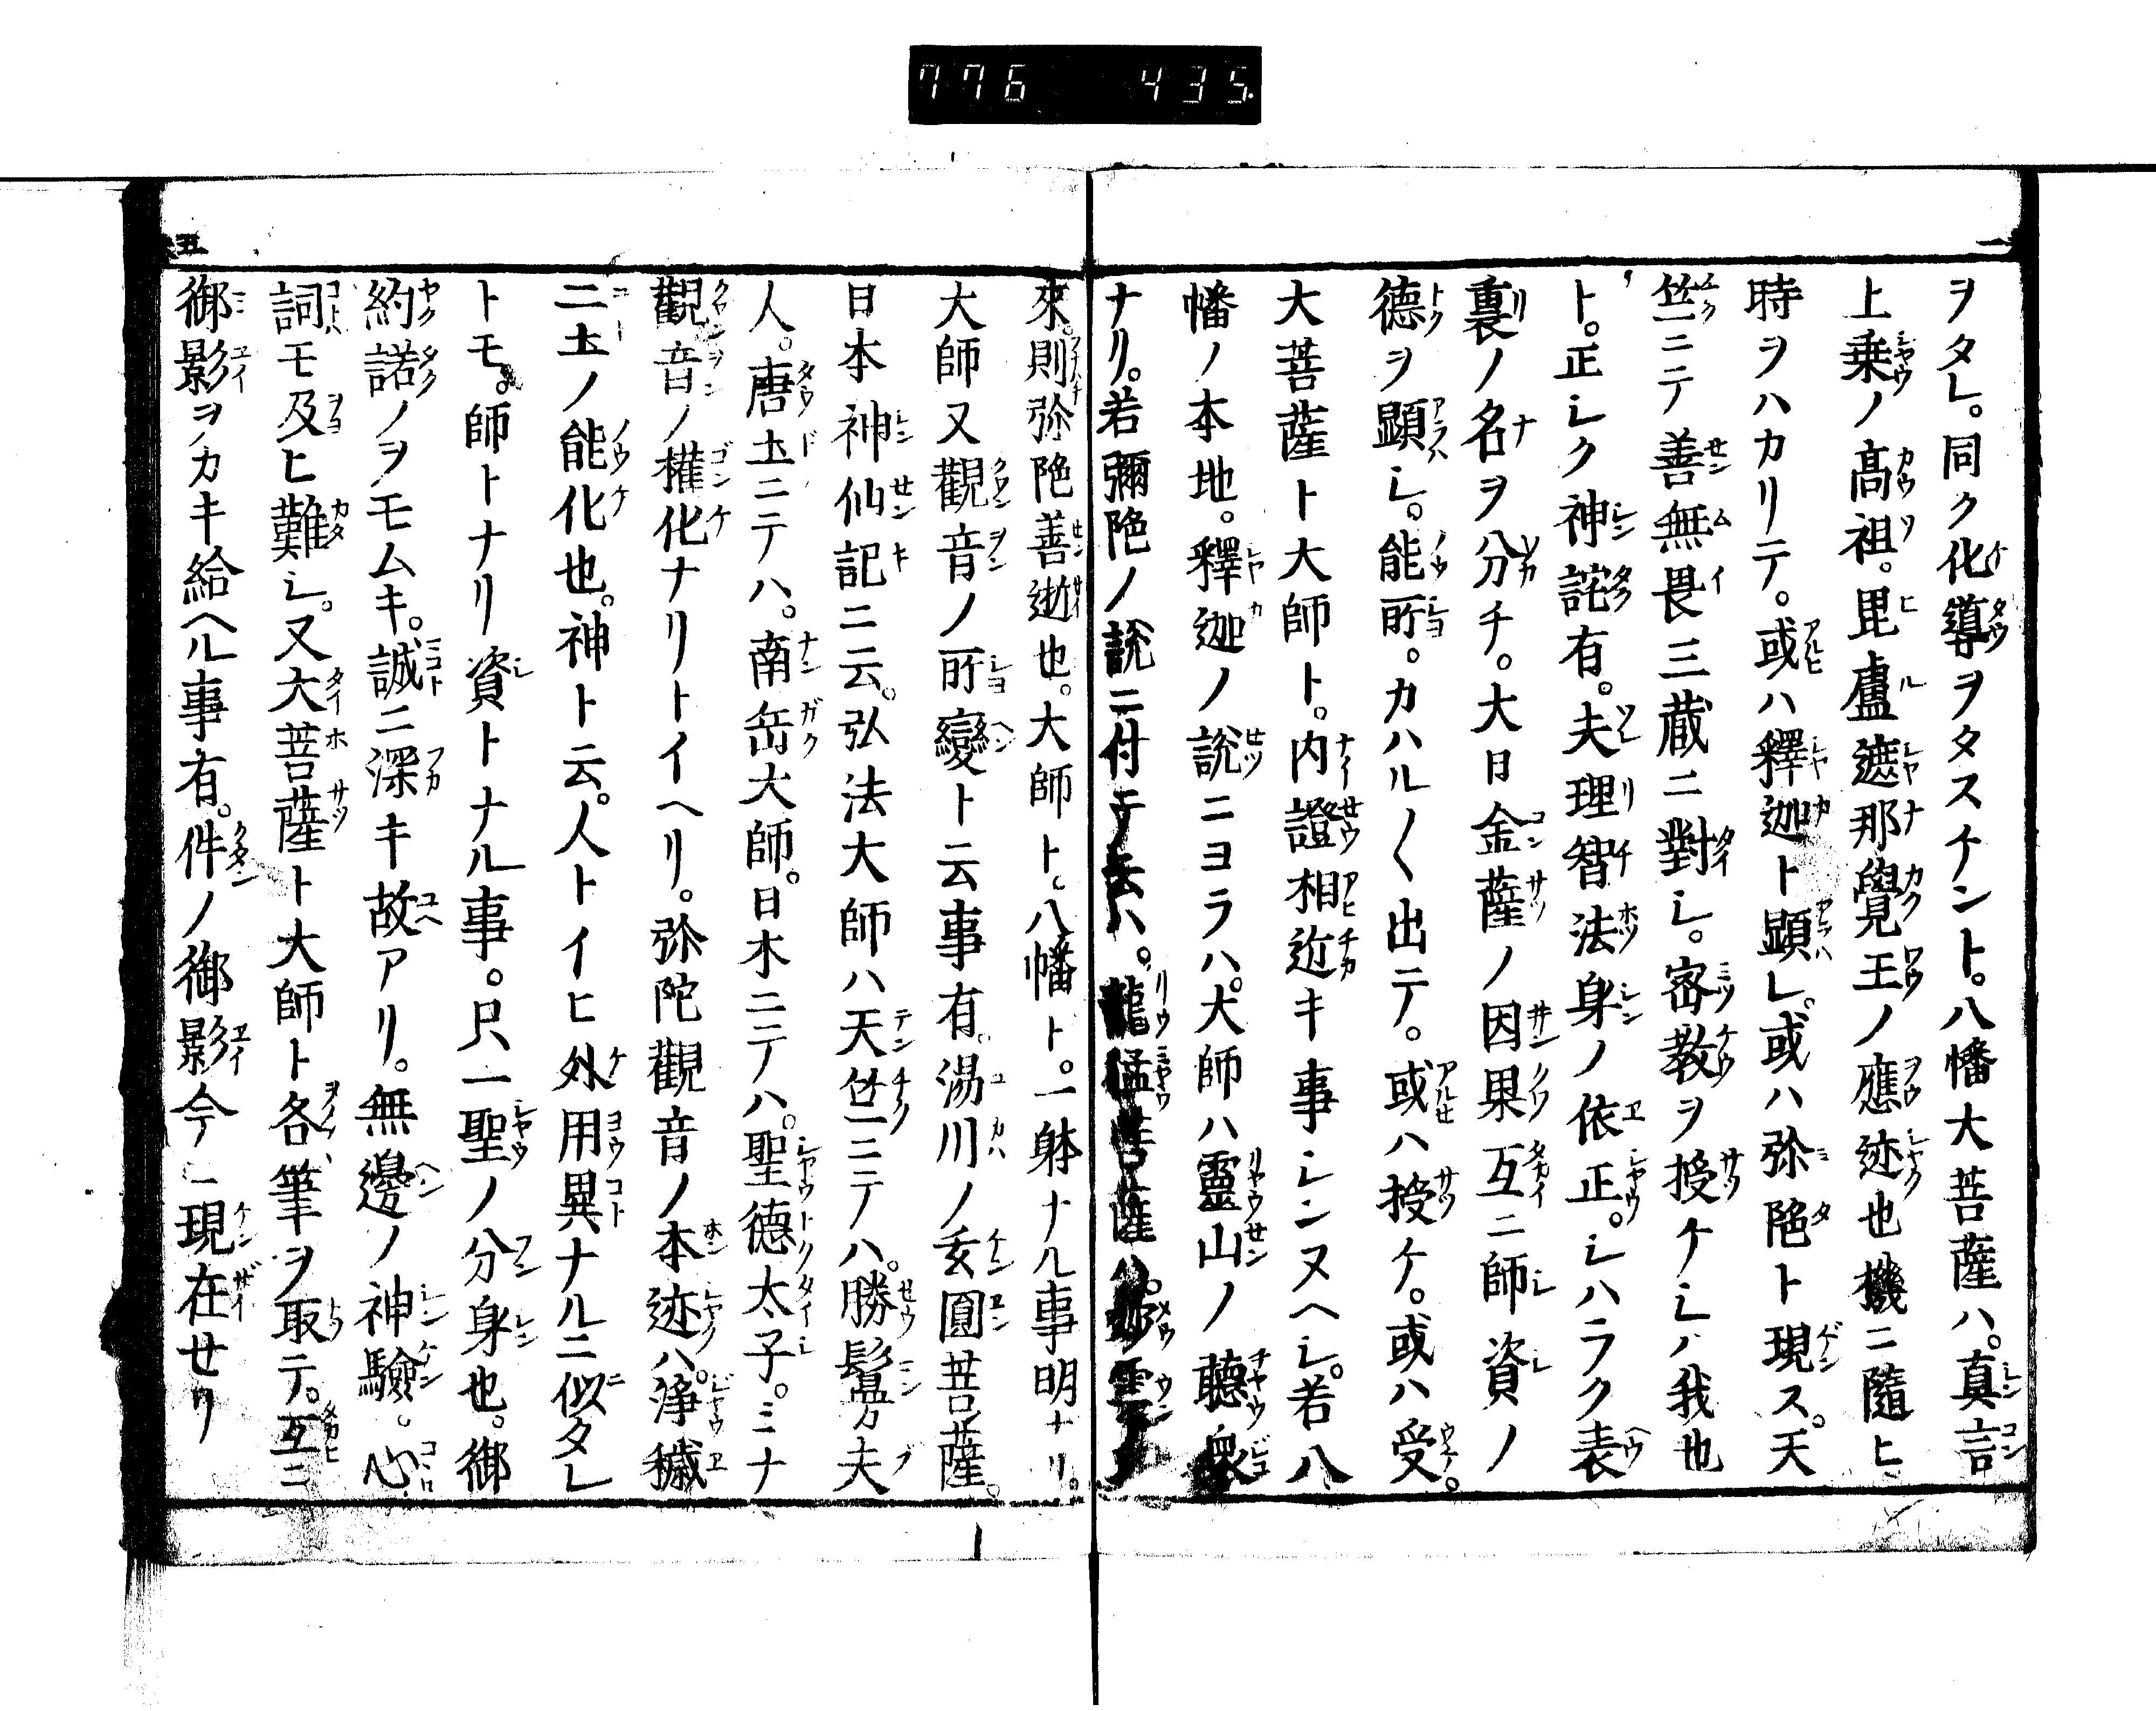 776 435
ヲタレ。同ク化導ヲタスケント。八幡大菩薩ハ。真言
上乗ノ髙祖。毘盧遮那覺王ノ應迹也機ニ隨ヒ
時ヲハカリテ。或ハ釋迦ト顕レ。或ハ弥陁ト現ス。天
竺ニテ善無畏三蔵ニ對シ。宻教ヲ授ケシハ我也
ト。正シク神詫有。夫理智法身ノ依正。シハラク表
裏ノ名ヲ分チ。大日金薩ノ因果互ニ師資ノ
德ヲ顕シ。能所。カハル〳〵出テ。或ハ授ケ。或ハ受。
大菩薩ト大師ト。内證相近キ事シンヌヘシ。若八
幡ノ本地。釋迦ノ說ニヨラハ。大師ハ靈山ノ聽衆
ナリ。若彌陁ノ說ニ付テ云ハ。龍猛菩薩ハ。妙雲
來。則弥陁善逝也。大師ト。八幡ト。一躰ナル事明ナリ。
大師又觀音ノ所變ト云事有。湯川ノ玄圓菩薩。
日本神仙記ニ云。弘法大師ハ天竺ニテハ。勝鬘夫
人。唐圡ニテハ。南岳大師。日本ニテハ。聖德太子。ミナ
觀音ノ權化ナリトイヘリ。弥陀觀音ノ本迹ハ。淨穢
二圡ノ能化也。神ト云。人トイヒ外用異ナルニ似タレ
トモ。師トナリ資トナル事。只一聖ノ分身也。御
約諾ノヲモムキ。誠ニ深キ故アリ。無邊ノ神驗。心
詞モ及ヒ難シ。又大菩薩ト大師ト各筆ヲ取テ。互ニ
御影ヲカキ給ヘル事有。件ノ御影今ニ現在セリ